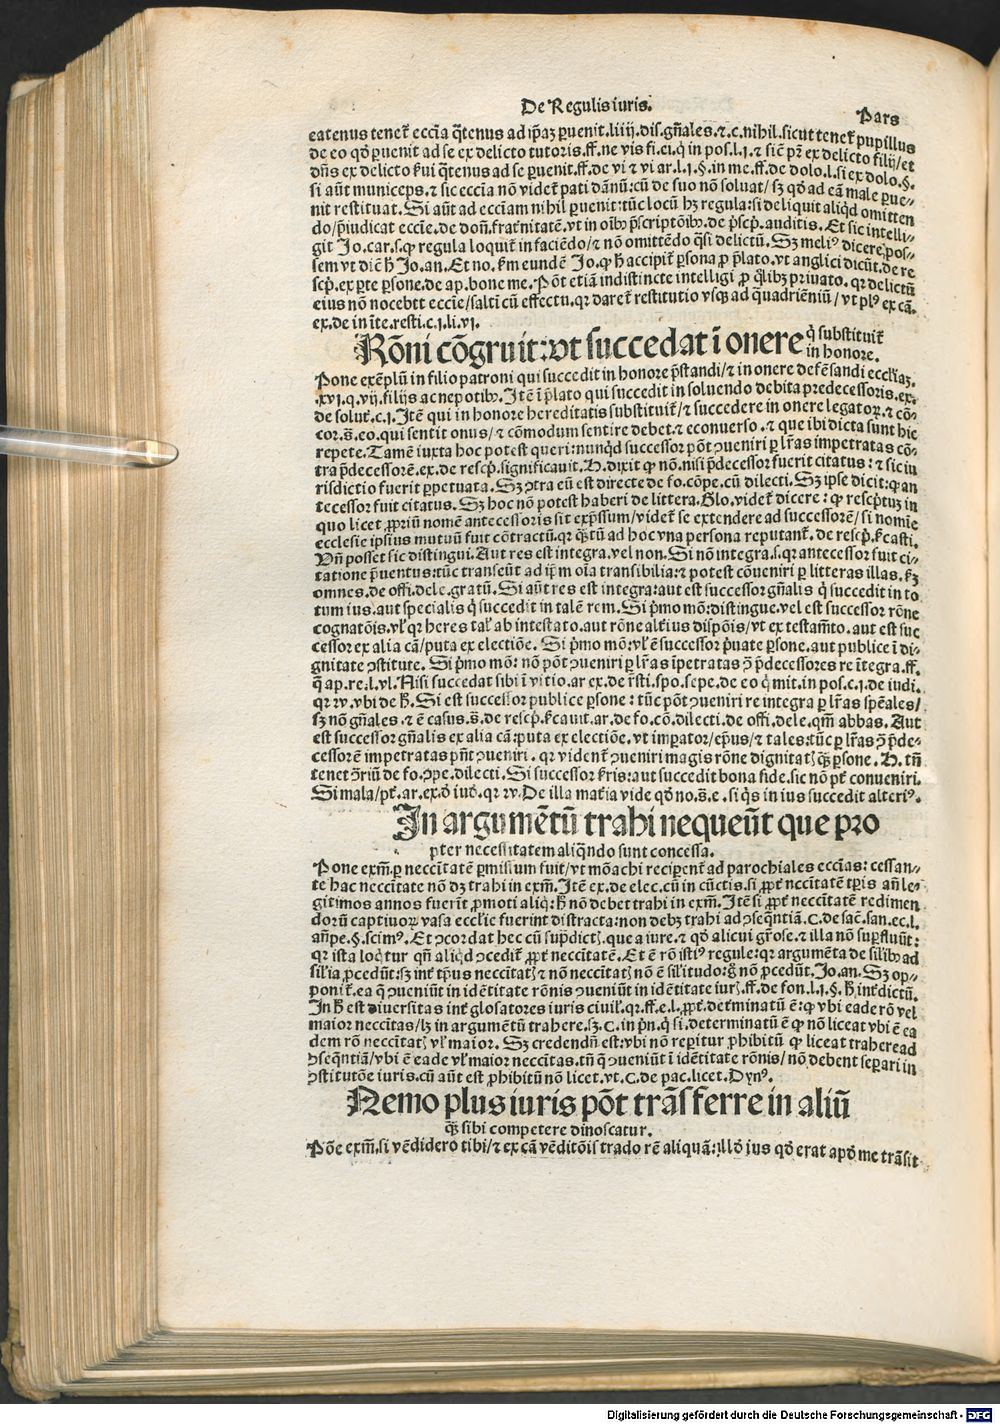 De Regulis iuris.
Pars
eatenus tenet᷑ eccīa q̄tenus ad ip̄aꝫ ꝑuenit.liiij.dis.gn̄ales.⁊.c.nihil.sicut tenet᷑ pupillus
de eo qd̓ ꝑuenit ad se ex delicto tutoris.ff.ne vis fi.ei.q̇ in pos.l.j.⁊ sic̄ pr̄ ex delicto filij/et
dn̄s ex delicto ẜui q̄tenus ad se ꝑuenit.ff.de vi ⁊ vi ar.l.j.§.in me.ff.de dolo.l.si ex dolo.§.
si aūt municeps.⁊ sic eccīa nō videt᷑ pati dān̄ū:cū de suo nō soluat/ sꝫ qd̓ ad eā male ꝑue-
nit restituat.Si aūt ad ecciam nihil ꝑuenit:tūc locū hꝫ regula:si deliquit aliqd̓ omitten
do/p̄iudicat eccīe.de don̄.frat᷑nitatē.vt in oībꝰ p̄scriptōibꝰ.de p̄scp̄.auditis.Et sic intelli-
git Jo.car.s.ꝙ regula loquit᷑ in faciēdo/⁊ nō omittēdo q̄si delictū.Sꝫ meliꝰ dicere pos-
sem vt dic̄ h̄ Jo.an.Et no.ẜm eundē Jo.ꝙ h̄ accipit᷑ ꝑsona ꝓ p̄lato.vt anglici dicūt.de re
scp̄.ex ꝑte ꝑsone.de ap.bone me.Pōt etiā indistincte intelligi ꝓ q̄libꝫ priuato.qꝛ delictū
eius nō nocebit eccīe/saltī cū effectu.qꝛ daret᷑ restitutio vsqꝫ ad quadriēniū/vt plꝰ ex cā.
ex.de in īte.resti.c.j.li.vj.
Rōni cōgruit:vt succedat ī onere q̇ substituit᷑
in honore.
Pone exēplū in filio patroni qui succedit in honore p̄standi/⁊ in onere defēsandi eccl̄iaꝫ.
.xvj.q.vij.filijs ac nepotibꝰ.Itē ī p̄lato qui succedit in soluendo debita predecessoris.ex.
de solut᷑.c.j.Itē qui in honore hereditatis substituit᷑/⁊ succedere in onere legatoꝝ.⁊ cō-
cor.s̄.eo.qui sentit onus/⁊ cōmodum sentire debet.⁊ econuerso.⁊ que ibi dicta sunt hic
repete.Tamē iuxta hoc potest queri:nunqd̓ successor pōt ꝯueniri ꝑ lr̄as impetratas cō-
tra p̄decessorē.ex.de rescp̄.significauit.H.dixit ꝙ nō.nisi p̄decessor fuerit citatus:⁊ sic iu
risdictio fuerit ꝑpetuata.Sꝫ ꝯtra eū est directe de fo.cōpe.cū dilecti.Sꝫ ipse dicit:ꝙ an
tecessor fuit citatus.Sꝫ hoc nō potest haberi de littera.Glo.videt᷑ dicere:ꝙ rescp̄tuꝫ in
quo licet ꝓpriū nomē antecessoris sit exp̄ssum/videt᷑ se extendere ad successorē/si nomīe
ecclesie ipsius mutuū fuit cōtractū.qꝛ q̄ꝫtū ad hoc vna persona reputant᷑.de rescp̄.ẜ casti.
Vn̄ posset sic distingui.Aut res est integra.vel non.Si nō integra.s.qꝛ antecessor fuit ci-
tatione p̄uentus:tūc transeūt ad ip̄m oīa transibilia:⁊ potest cōueniri ꝑ litteras illas.ẜꝫ
omnes.de offi.dele.gratū.Si aūt res est integra:aut est successor gn̄alis q̇ succedit in to
tum ius.aut specialis q̇ succedit in talē rem.Si pͥmo mō:distingue.vel est successor rōne
cognatōis.vl̓ qꝛ heres tal̓ ab intestato.aut rōne alt᷑ius dispōis/vt ex testam̄to.aut est suc
cessor ex alia cā/puta ex electiōe. Si pͥmo mō:vl̓ ē successor pͥuate ꝑsone.aut publice ī di-
gnitate ꝯstitute. Si pͥmo mō: nō pōt ꝯueniri ꝑ lr̄as īpetratas ꝯ̄ p̄decessores re ītegra.ff.
q̄ ap.re.l.vl.Nisi succedat sibi ī vitio.ar ex.de rēsti.spo.sepe.de eo q̇ mit.in pos.c.j.de iudi.
qꝛ rv.vbi de h̄.Si est successor publice ꝑsone: tūc pōt ꝯueniri re integra ꝑ lr̄as spēales/
sꝫ nō gn̄ales.⁊ ē casus.s̄.de rescp̄.ẜ cauit.ar.de fo.cō.dilecti.de offi.dele.qm̄ abbas.Aut
est successor gn̄alis ex alia cā:puta ex electiōe.vt imꝑator/ep̄us/⁊ tales:tūc ꝑ lr̄as ꝯ̄ p̄de-
cessorē impetratas pn̄t ꝯueniri. qꝛ vident᷑ ꝯueniri magis rōne dignitat̄ q̄ꝫ ꝑsone.H.tn̄
tenet ꝯ̄riū de fo.ꝯpe.dilecti.Si successor ẜris:aut succedit bona fide.sic nō pt̄ conueniri.
Si mala/pt̄.ar.ex.d̓ iud̓.qꝛ rv.De illa mat᷑ia vide qd̓ no.s̄.e.si q̇s in ius succedit alteriꝰ.
In argumētū trahi nequeūt que pro
pter necessitatem aliqn̄do sunt concessa.
Pone exm̄.ꝑ neccitatē ꝑmissum fuit/vt mōachi recipent᷑ ad parochiales eccīas: cessan-
te hac neccitate nō dꝫ trahi in exm̄.Itē ex.de elec.cū in cūctis.si ꝓpt᷑ nccitatē tp̄is an̄ le-
gitimos annos fuerīt ꝓmoti aliq̇:h̄ nō debet trahi in exm̄.Itē si ꝓpt᷑ neccitatē redimen
dorū captiuoꝝ vasa eccl̄ie fuerint distracta:non debꝫ trahi ad ꝯseq̄ntiā.C.de sac̄.san.ec.l.
an̄pe.§.scimꝰ.Et ꝯcordat hec cū sup̄dict̄.que a iure.⁊ qd̓ alicui gr̄ose.⁊ illa nō suꝑfluūt:
qꝛ ista loq̄tur qn̄ aliqd̓ ꝯcedit᷑ ꝓpt᷑ neccitatē.Et ē rō istiꝰ regule:qꝛ argumēta de sīlibꝰ ad
sīlia ꝓcedūt:sꝫ int᷑ tp̄us neccitat̄ ⁊ nō neccitat̄ nō ē sīlitudo:g̊ nō ꝓcedūt.Jo.an.Sꝫ op-
ponit᷑.ea q̄ ꝯueniūt in idētitate rōnis ꝯueniūt in idētitate iur̄.ff.de fon.l.j.§.h̄ int᷑dictū.
In h̄ est diuersitas int᷑ glosatores iuris ciuil̓.qꝛ.ff.e.l.ꝓpt᷑.det᷑minatū ē:ꝙ vbi eadē rō vel
maior neccitas/lꝫ in argumētū trahere.sꝫ.C.in pn̄.q̇ si.determinatū ē ꝙ nō liceat vbi ē ea
dem rō neccitat̄ vl̓ maior. Sꝫ credendū est:vbi nō reꝑitur ꝓhibitū ꝙ liceat trahere ad
ꝯseq̄ntiā/vbi ē eadē vl̓ maior neccitas.tū q̄ ꝯueniūt ī idētitate rōnis/ nō debent seꝑari in
ꝯstitutōe iuris.cū aūt est ꝓhibitū nō licet.vt.C.de pac.licet.Dynꝰ.
Nemo plus iuris pōt trāsferre in aliū
q̄ꝫ sibi competere dinoscatur.
Pōe exm̄.si vēdidero tibi/⁊ ex cā vēditōis trado rē aliquā:illd̓ ius qd̓ erat apd̓ me trāsit
Digitalisierung gefördert durch die Deutsche Forschungsgemeinschaft - DFG